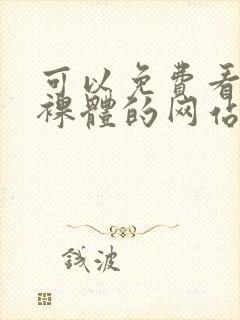 可以免费看
裸體的网站
钱波